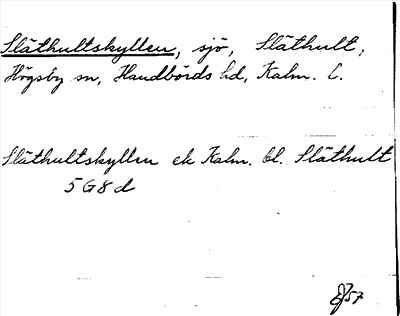 Släthultskyllen, sjö, Släthult,
Högsby sn, Handbörds hd, Kalm. l.
Släthultskyllen ek Kalm. bl. Släthult
5G8d
57